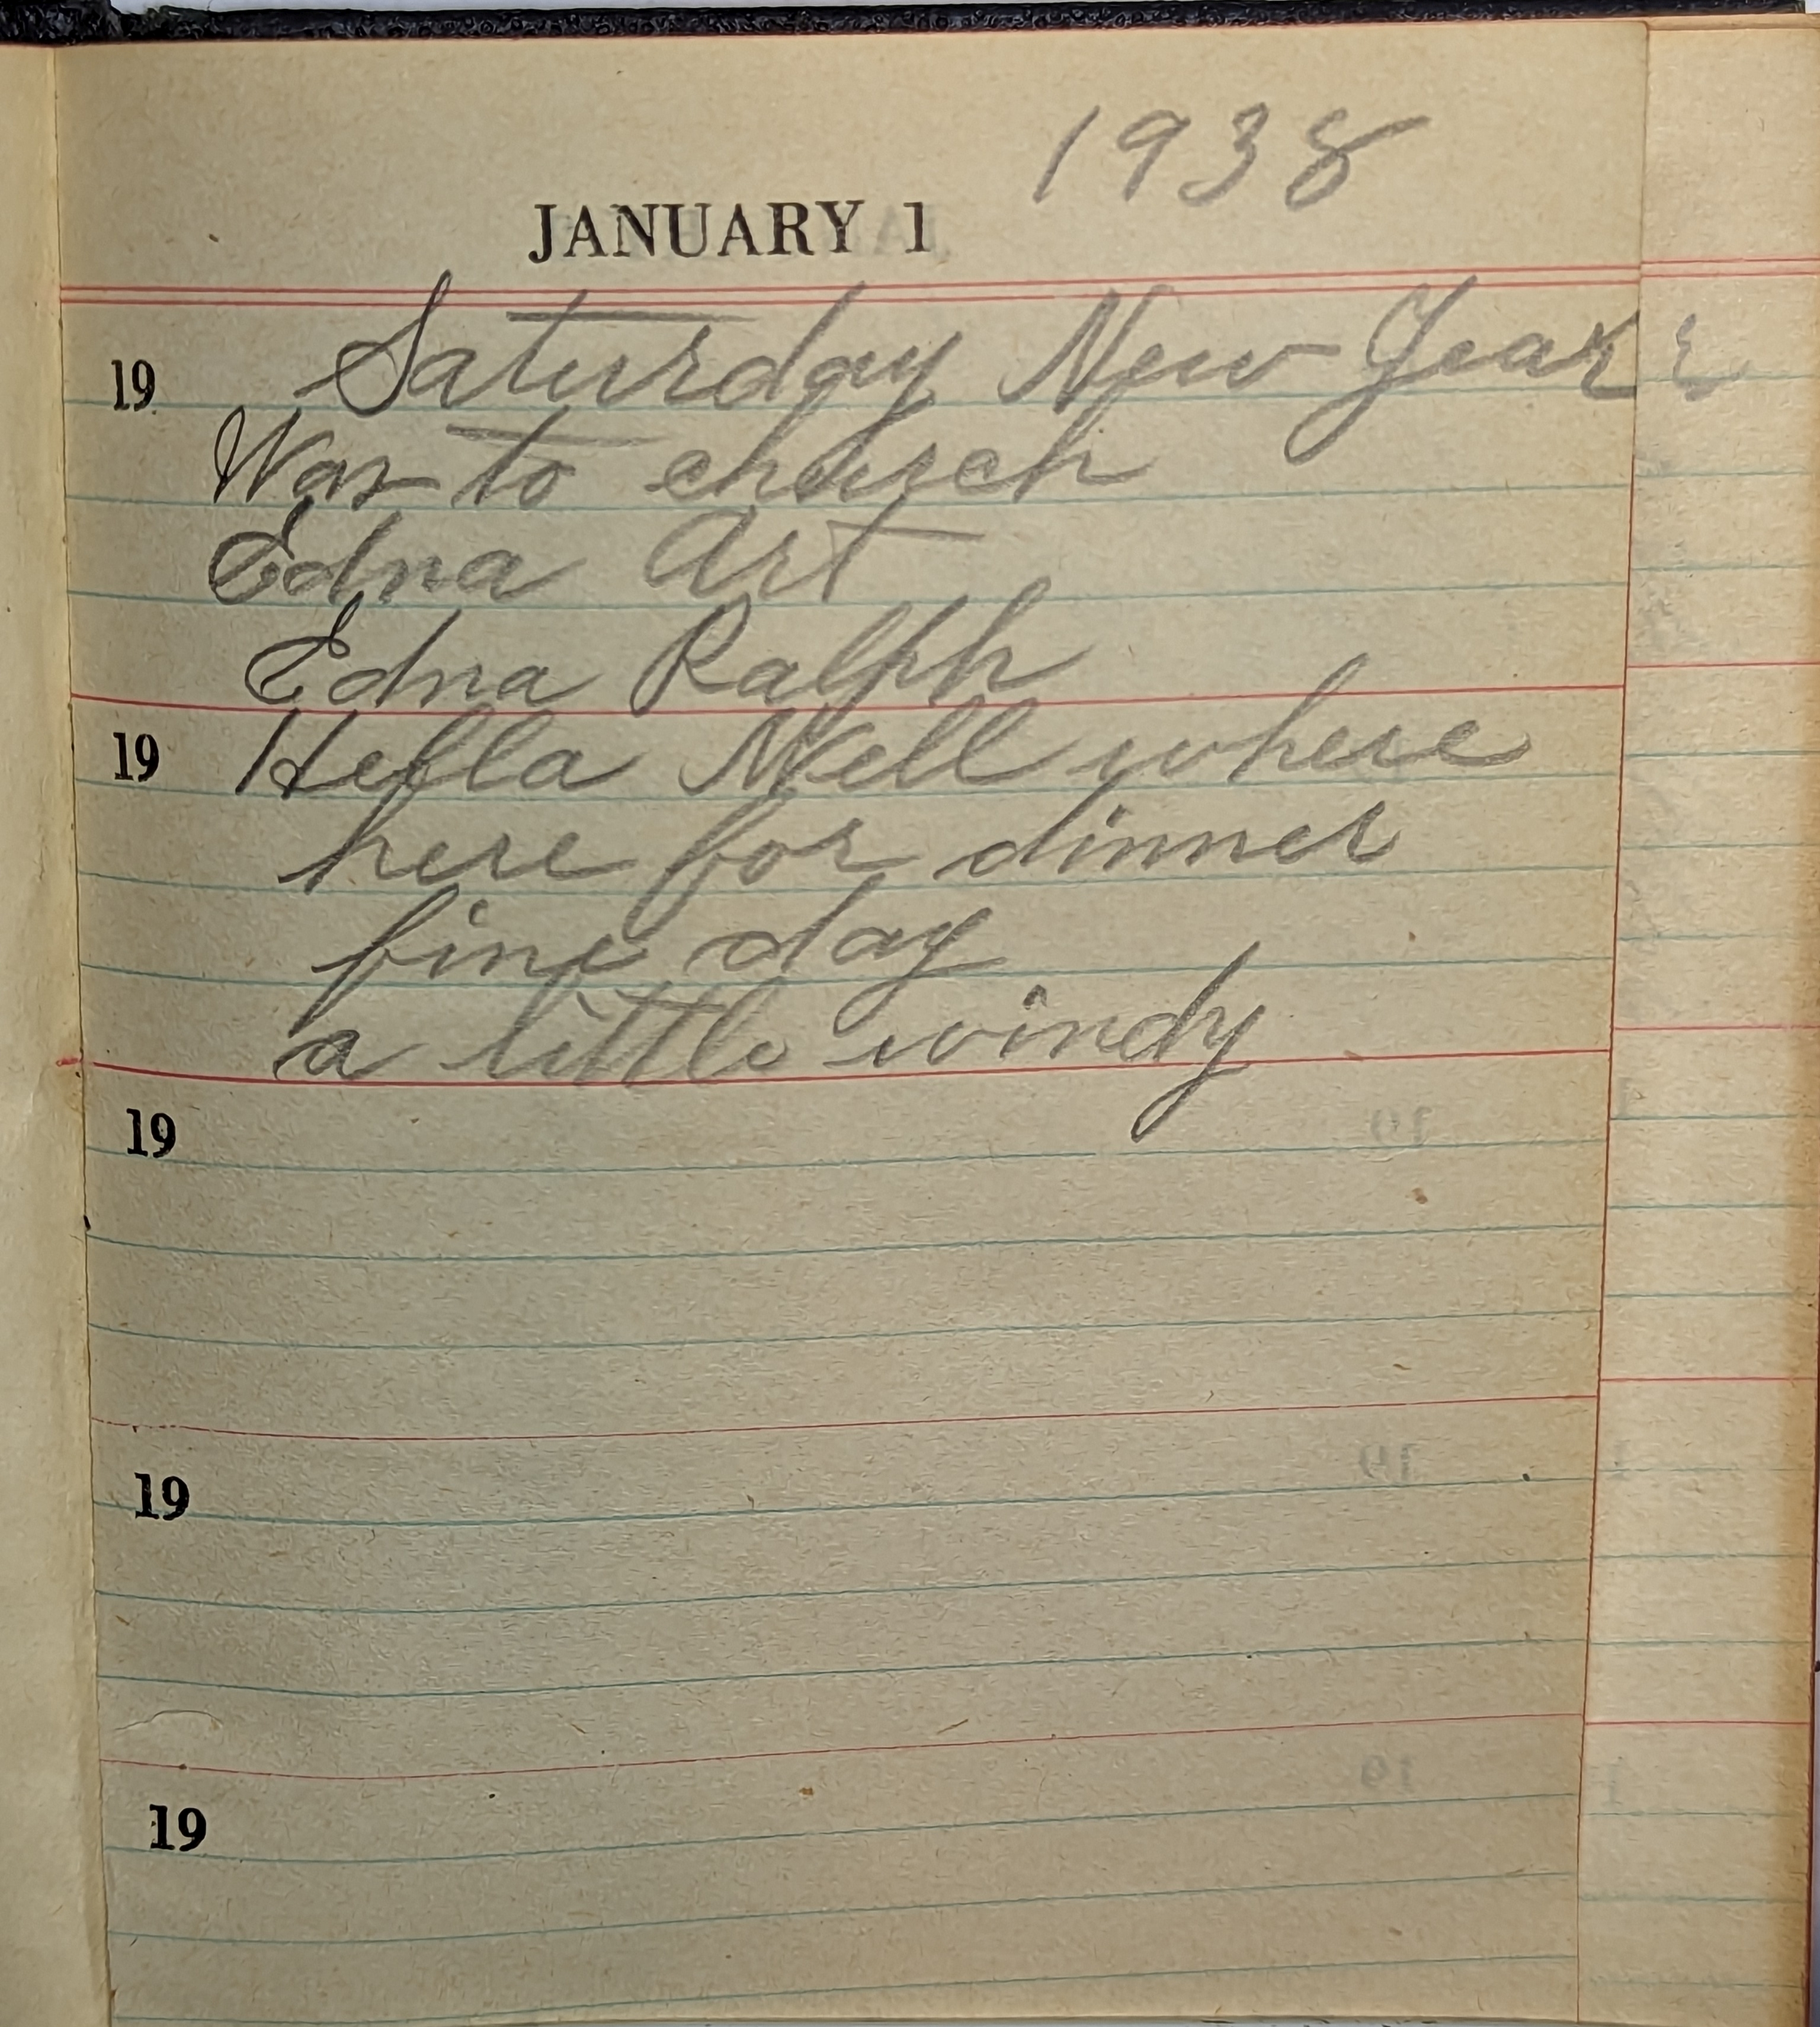 1938
JANUARY 1
19 Saturday New Years
Was to church
Edna Art
Edna Ralph
19 Hella Nell where
here for dinner
fine day
a little windy
19
19
19